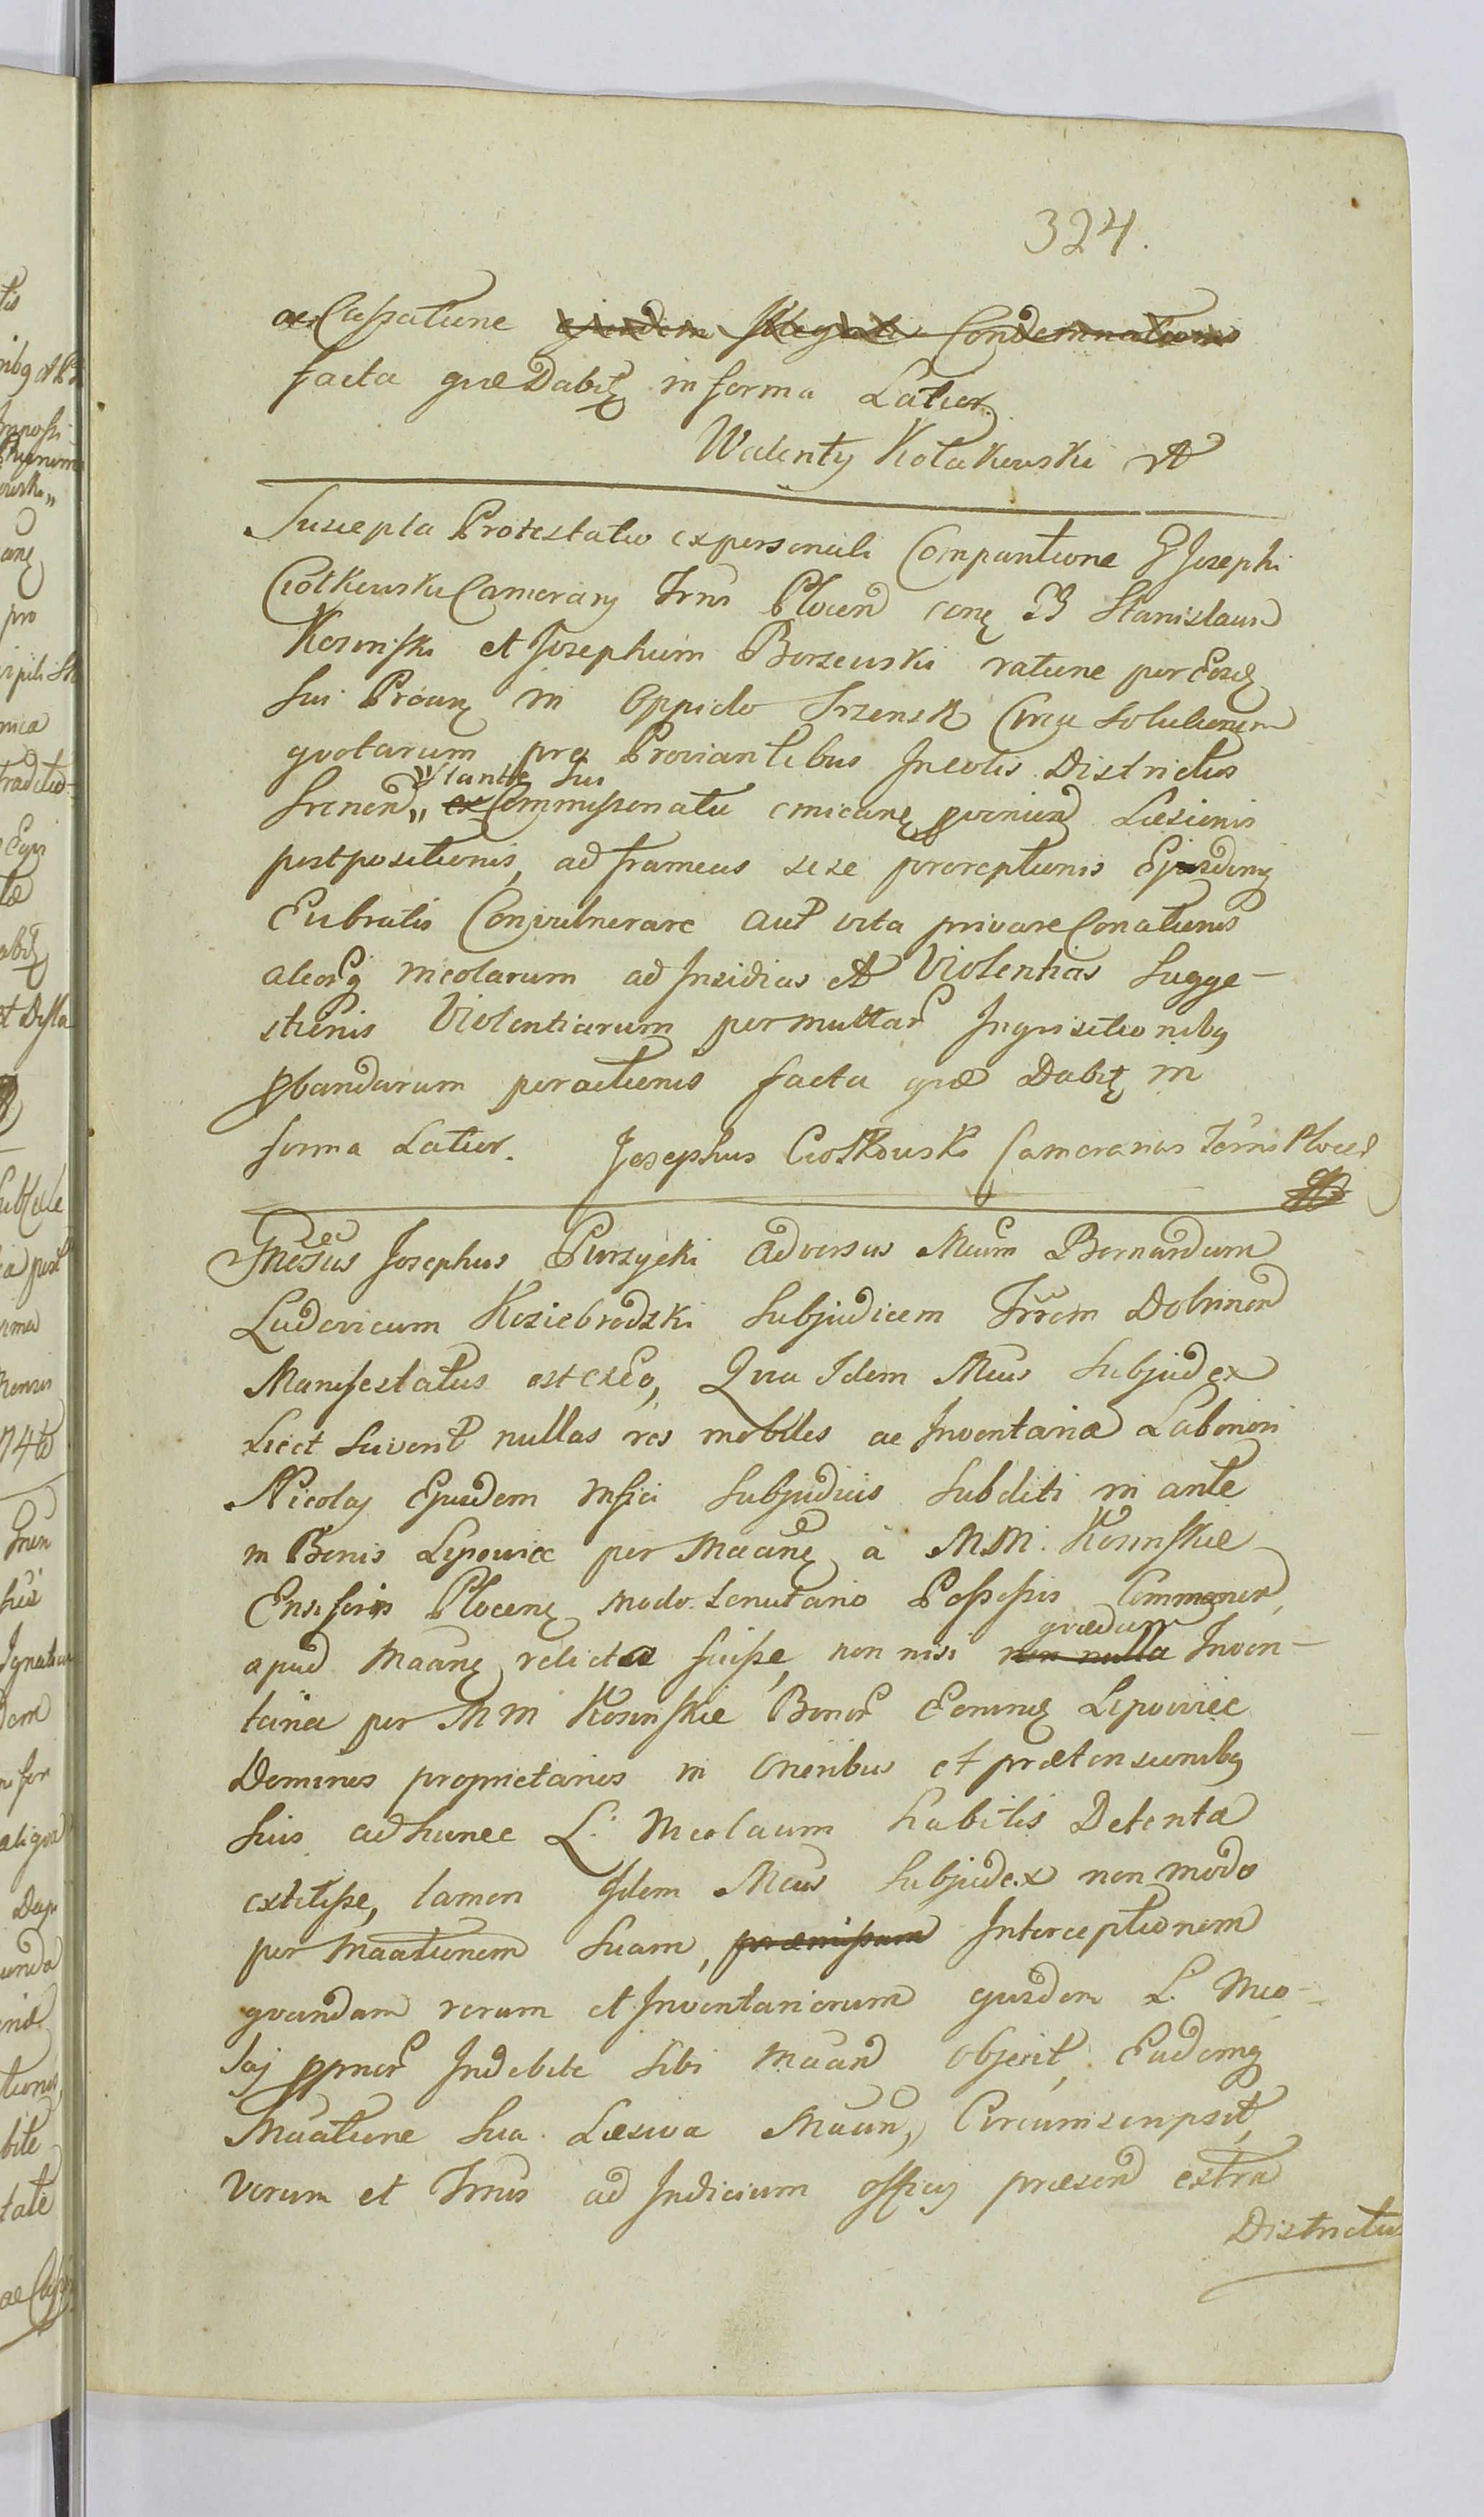 324.
ac Cassatione ejusdem Condemnationis
facta quæ Dabit in forma Latior
Walenty Kołakowski
Suscepta Protestatio ex personali Comparitione G Josephi
Ciołkowski Camerarij Trrus Plocen con G Stanislaum
Kosinski et Josephum Borzewski ratione per Eosd
sui in Oppido Srzensk Circa Solutionem
quotarum pro Proviantibus Incolis Districtus
stante sui
Srenen, ex Commissionatu Læsionis
postpositionis, ad frameas sese proreptionis Ejusdemq
Eubratis Convulnerare aut vita privare Conationis
alcorq incolarum ad Insidias et Violentias Sugge-
stionis Violentiarum per multar Inquisitionibq
pbandarum peractionis facta quæ Dabit in
forma Latior. Josephus Ciołkowski Camerarius Terrus Plocen
Gnesus Josephus Purzycki adversus Mcum Bernardum
Ludovicum Koziebrodzki Subjudicem Trrem Dobrinen
Manifestatus est ex eo, Quia Idem Mcus Subjudex
Licet sciverit nullas res mobiles ac Inventaria Laboriosi
Nicolaj Ejusdem Msici Subjudicis Subditi in ante
in Bonis Lipowiec per Maanç à M.M. Kosinskie
Ensiferis Plocenç modo tenutario Possessis Commoran,
apud Maanç relicta fuisse, non nisi non nulla Inven-
quædam
taria per MM Kosinskie Bonor Eorumq Lipowiec
Dominos proprietarios in Oneribus et prætensionibq
suis ad hunec L. Nicolaum habitis Detenta
extitisse, tamen Idem Mcus Subjudex non modo
per Maationem suam, præmissam Interceptionem
quandam rerum et Inventariorum ejusdem L. Nico-
laj ppner Indebite sibi Maand objecit, Eademq
Maatione sua Læsiva Maan, Circumscripsit,
verum et Trrus ad Judicium officij præsen extra
Districtus